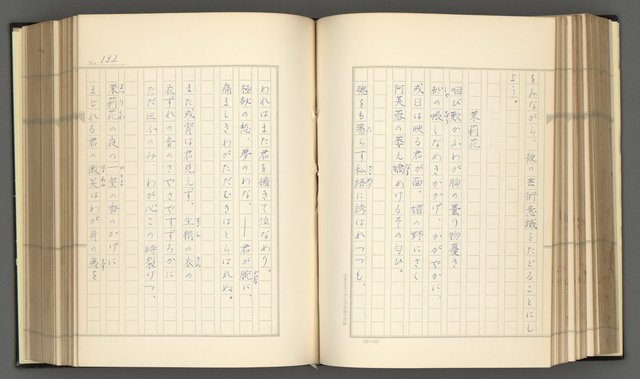 をみながら、彼の芸術意識をたどることにし
よう。
茉莉花
咽び歎かふわが胸の曇り物憂き
紗の帳しなめきかかげ、かがやかに、
或日は映る君が面、媚の野にさく
阿芙蓉の萎え嬌めけるその匂ひ。
魂をも蕩らす私語に誘はれつつも、
われはまた君を擁きて泣くなめり、
極秘の愁、夢のわな、―君が腕に、
痛ましきわがただむきはとらはれぬ。
また或宵は君見えず、生絹の衣の
衣ずれの音のさやさやすずろかに
ただ伝ふのみ、わが心この時裂けつ、
茉莉花の夜の一室の香のかげに
まじれる君の微笑はわが身の痍を
No. 132